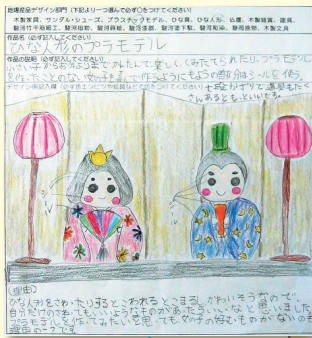 地場産品デザイン部門（下記より一つ選んで必ず○をつけてください）
木製家具、サンダル・シューズ、プラスチックモデル、ひな具、ひな人形、仏壇、木製雑貨、建具、
駿河竹千筋細工、駿河指物、駿河蒔絵、駿河漆器、駿河塗下駄、駿河和染、静岡挽物、木製文具
作品名（必ず記入してください）
ひな人形のプラモデル
作品の説明（必ず記入してください）
小さい子からお年よりまでかんたんで楽しくくみたてられたり、プラモデル
を作ったことのない女の子も
作ろうにもようの部分はシールを使う。
デザイン画記入欄
七段かざりで道具もたく
さんあるともっといいな。
シール
シール
（理由）
ひな人形をさわったりするとこわれるとこまるし、かわいそうなので
自分だけのさわってもいいようなものがあったらいいなと思いました。
プラモデルを作ってみたいと思っても女の子の好むものがないのも
理由の一つです。